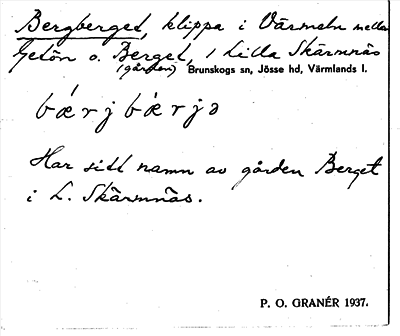 Bergberget, klippa i Värmeln mellan
Getön o. Berget, i Lilla Skärmnäs
(gården) Brunskogs sn, Jösse hd, Värmlands l.
bǽrjbærjə
Har sitt namn av gården Berget
i L. Skärmnäs.
P. O. GRANÉR 1937.